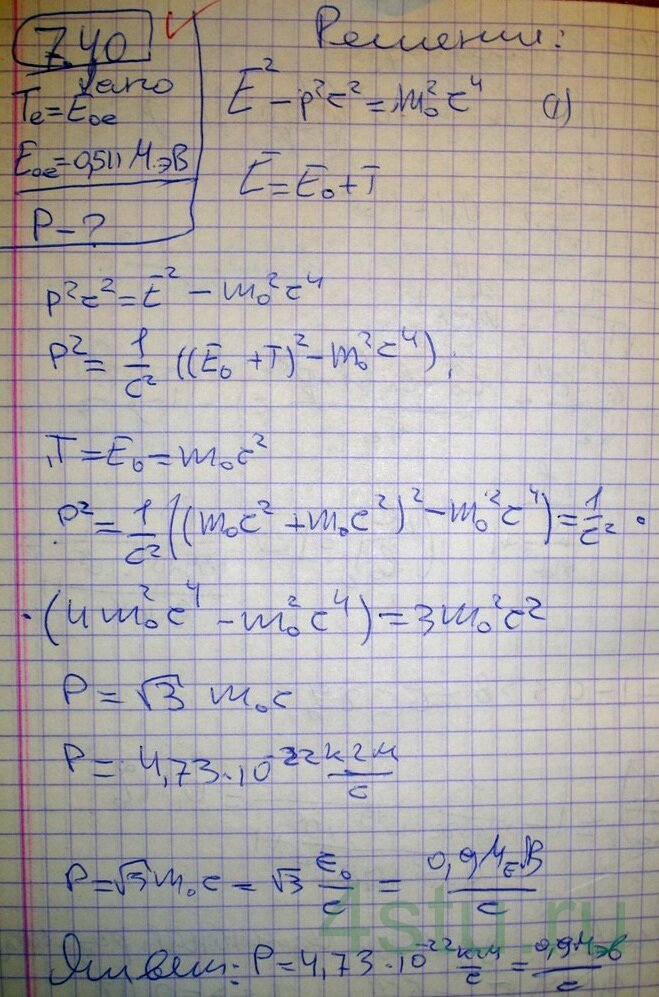 7.40
Решение:
Дано
Tₑ=E₀ₑ
E₀ₑ=0,511 МэВ
P-?
E²-p²c²=m₀²c⁴ (1)
E=E₀+T
p²c²=E²-m₀²c⁴
P²=1/c²((E₀+T)²-m₀²c⁴);
T=E₀=m₀c²
P²=1/c²((m₀c²+m₀c²)²-m₀²c⁴)=1/c²·
·(4m₀²c⁴-m₀²c⁴)=3m₀²c²
P=√3 m₀c
P=4,73·10⁻²² кгм/с
P=√3m₀c=√3 E₀/c=0,9МэВ/c
Ответ: P=4,73·10⁻²² кгм/с=0,9МэВ/c
4stu.ru